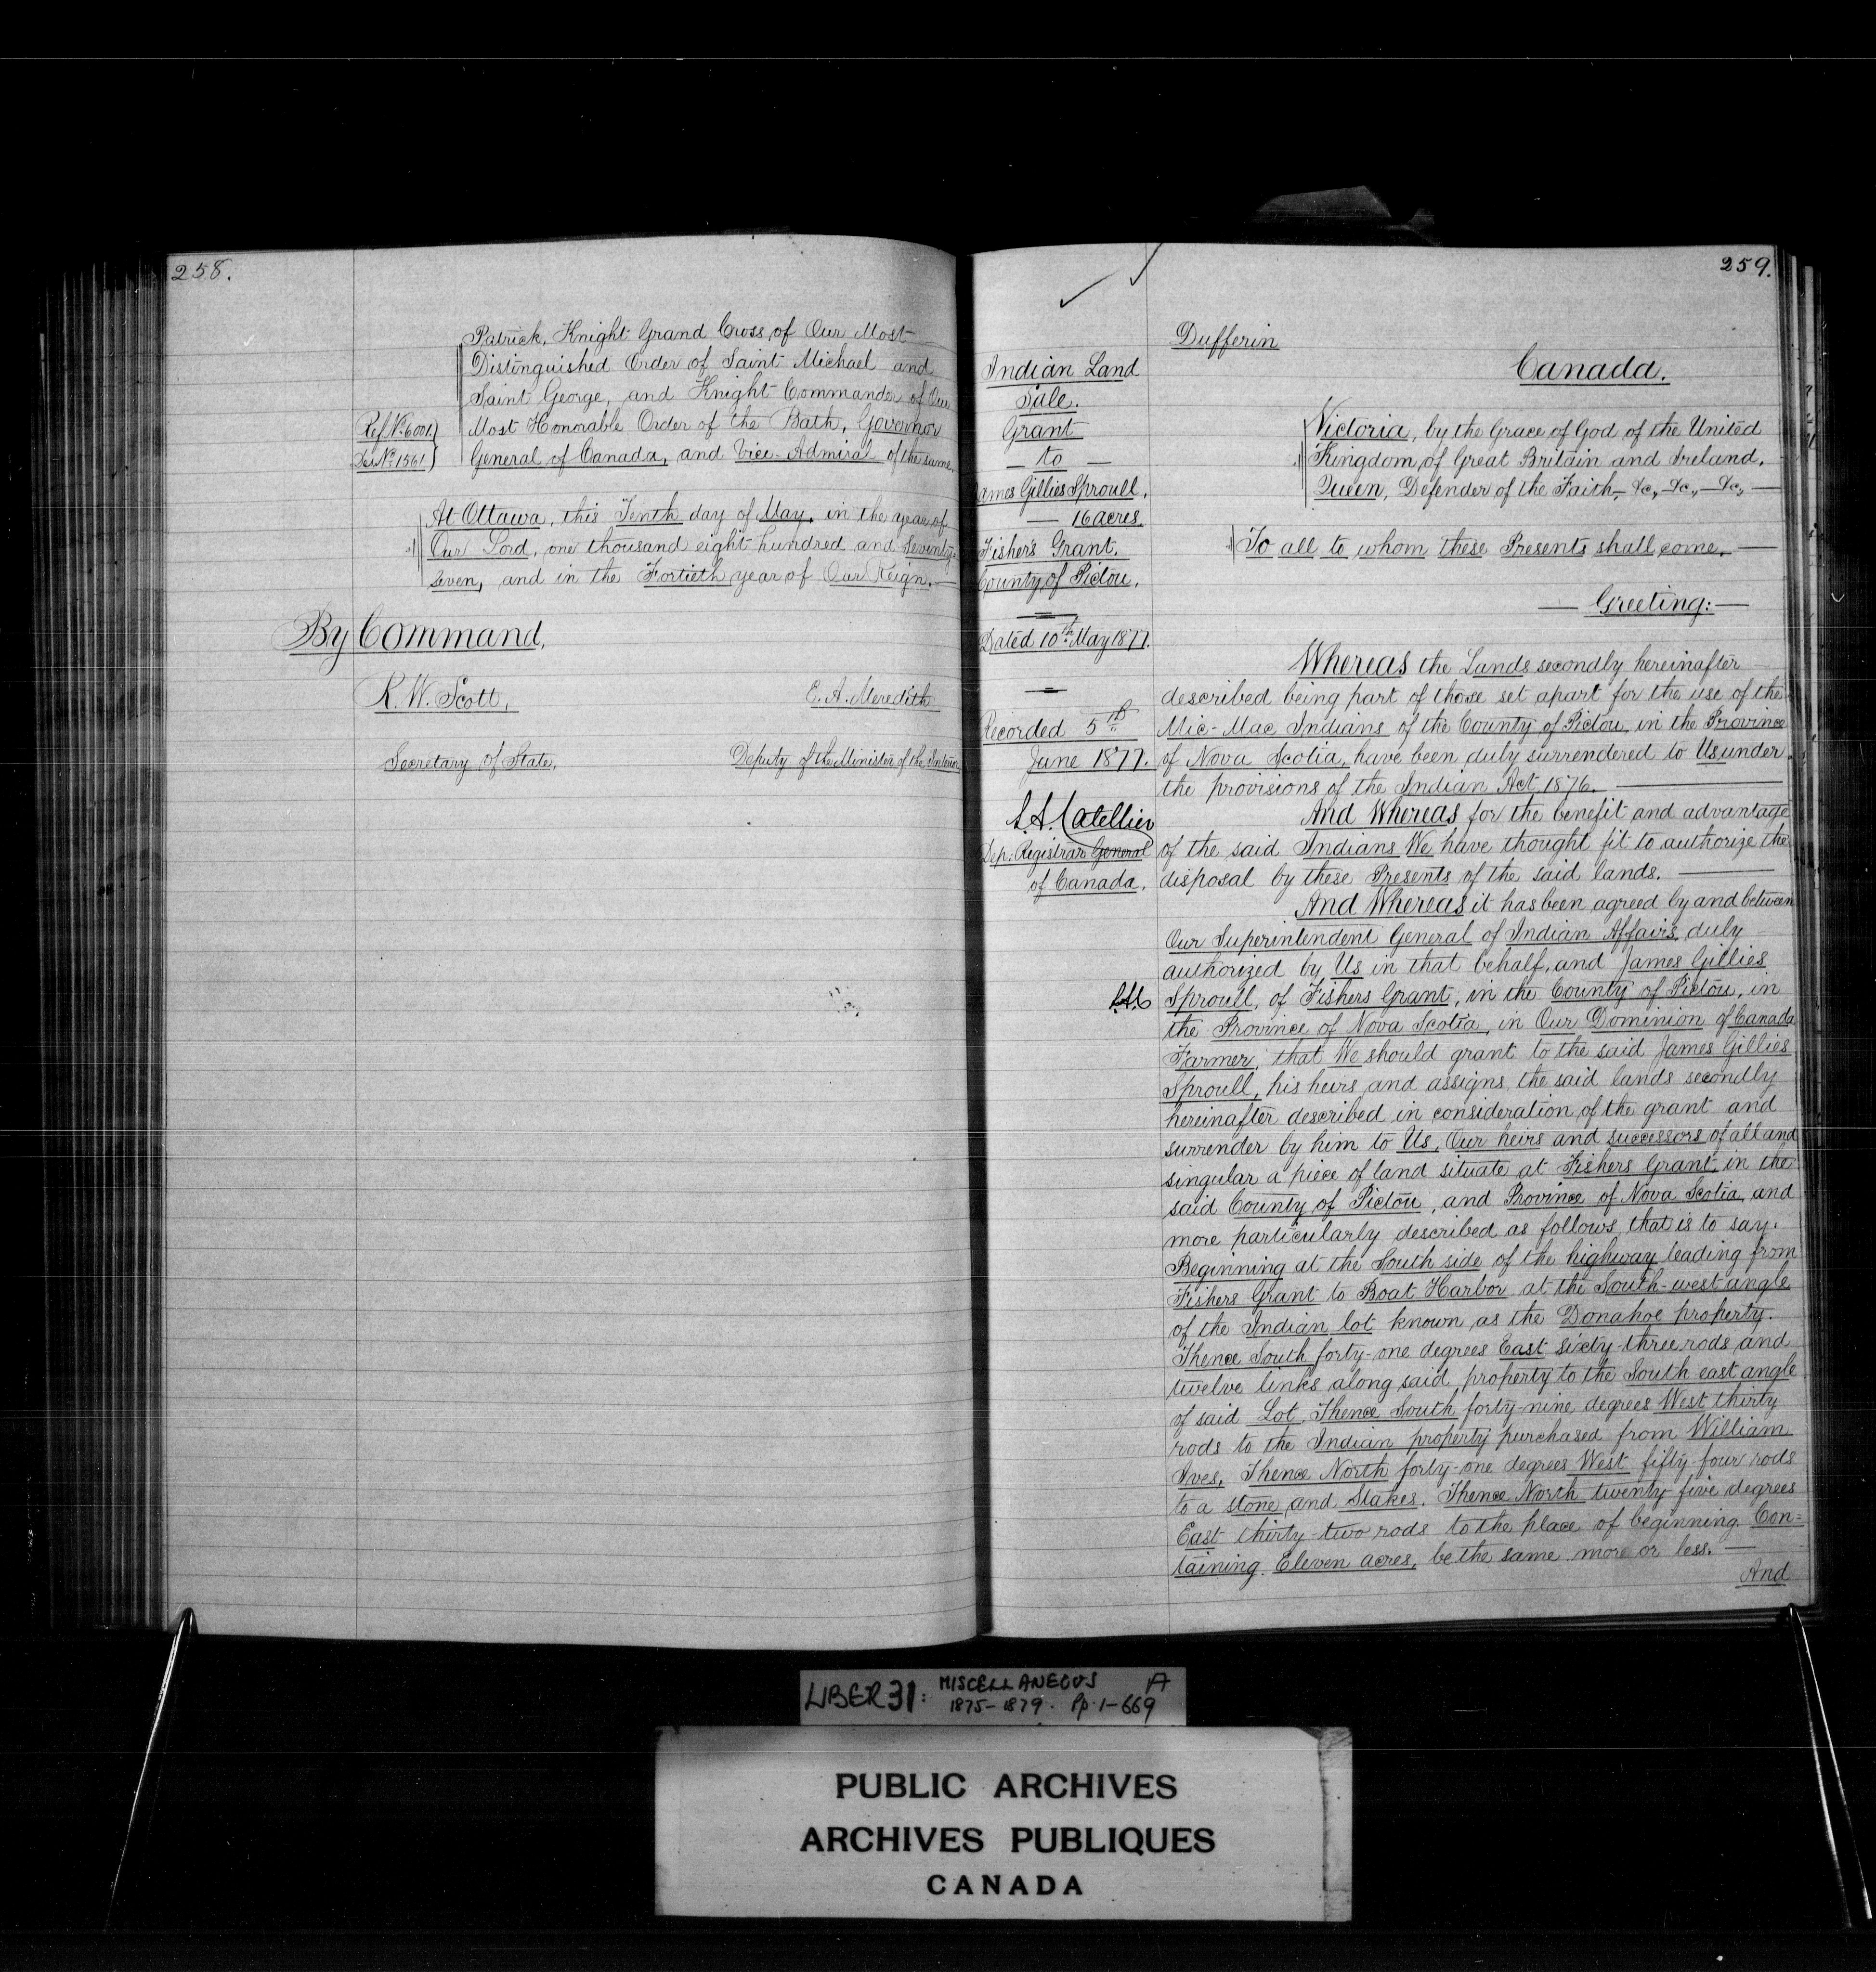 258.
Patrick, Knight Grand Cross, of Our Most
Distinguished Order of Saint Michael and
Saint George, and Knight Commander of Our
Most Honorable Order of the Bath, Governor
General of Canada, and Vice-Admiral of the same.
Ref. No. 6001.
Des No. 1561
At Ottawa, this Tenth day of May, in the year of
Our Lord, one thousand eight hundred and seventy-
seven, and in the Fortieth year of Our Reign.
By Command,
R. W. Scott,
E. A. Meredith
Secretary of State.
Deputy of the Minister of the Interior
259.
Indian Land
Sale.
Grant
to
James Gillies Sproull,
16 acres.
Fisher's Grant.
County of Pictou.
Dated 10th May 1877.
Recorded 5th
June 1877.
L. A. Catellier
Dep: Registrar General
of Canada.
Dufferin
Canada.
Victoria, by the Grace of God of the United
Kingdom of Great Britain and Ireland,
Queen, Defender of the Faith, &c., &c., &c.,
To all to whom these Presents shall come,
Greeting:
Whereas the Lands secondly hereinafter
described being part of those set apart for the use of the
Mic-Mac Indians of the County of Pictou, in the Province
of Nova Scotia, have been duly surrendered to Us under
the provisions of the Indian Act, 1876.
And Whereas for the benefit and advantage
of the said Indians We have thought fit to authorize the
disposal by these Presents of the said lands.
And Whereas it has been agreed by and between
Our Superintendent General of Indian Affairs, duly
authorized by Us in that behalf, and James Gillies
Sproull, of Fishers Grant, in the County of Pictou, in
the Province of Nova Scotia, in Our Dominion of Canada
Farmer, that We should grant to the said James Gillies
Sproull, his heirs and assigns, the said lands secondly
hereinafter described in consideration of the grant and
surrender by him to Us, Our heirs and successors of all and
singular a piece of land situate at Fishers Grant, in the
said County of Pictou, and Province of Nova Scotia, and
more particularly described as follows, that is to say.
Beginning at the South side of the highway leading from
Fishers Grant to Boat Harbor at the South-west angle
of the Indian lot known as the Donahoe property.
Thence South forty-one degrees East sixty-three rods and
twelve links along said property to the South east angle
of said Lot. Thence South forty-nine degrees West thirty
rods to the Indian property purchased from William
Ives, Thence North forty-one degrees West fifty-four rods
to a stone and Stakes. Thence North twenty five degrees
East thirty-two rods to the place of beginning. Con=
taining. Eleven acres, be the same more or less.
And
LIBER 31: MISCELLANEOUS A
1875-1879. Pp. 1-669
PUBLIC ARCHIVES
ARCHIVES PUBLIQUES
CANADA